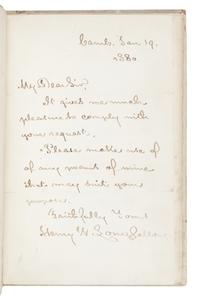 Camb. Jan 19.
1880
My Dear Sir,
It gives me much
pleasure to comply with
your request.
Please make use of
of any poems of mine
that may suit your
purpose.
Faithfully Yours
Henry W. Longfellow